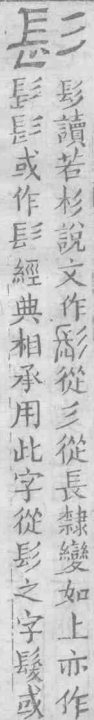 髟
髟讀若杉說文作髟從彡從長隸變如上亦作
髟髟或作髟經典相承用此字從髟之字髲或